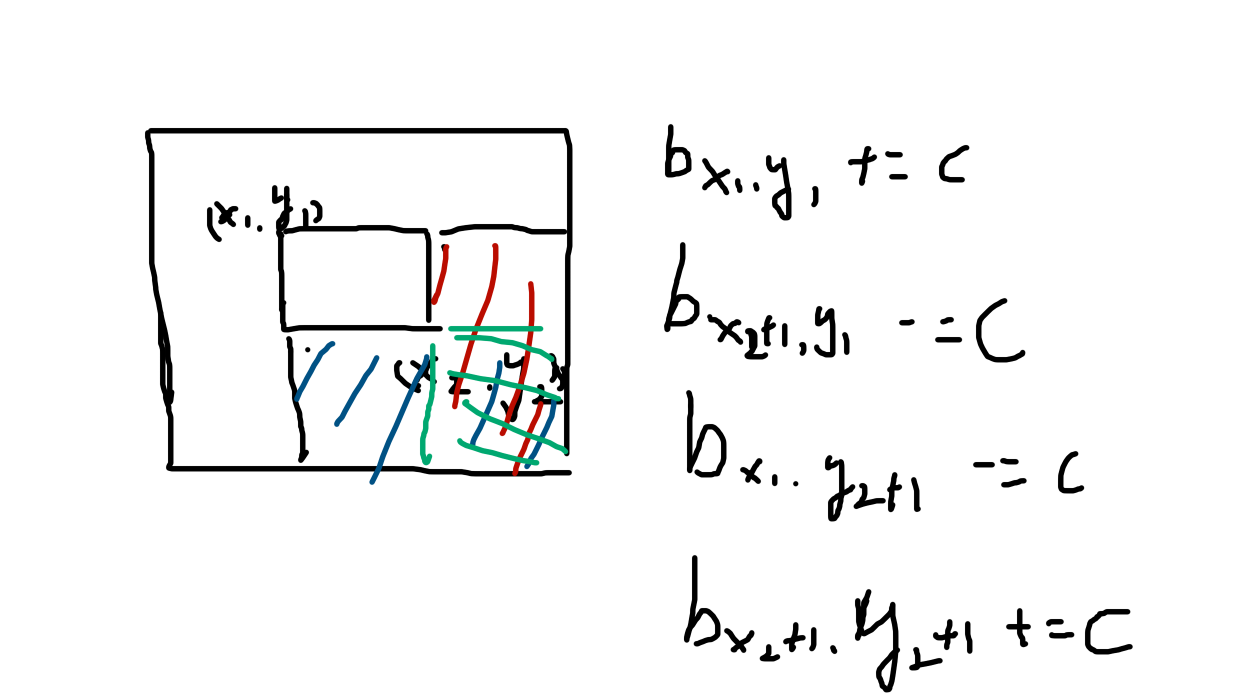 (x₁. y₁)
(x₂. y₂)
b x₁. y₁ += c
b x₂+1, y₁ -= C
b x₁. y₂+1 -= c
b x₂+1. y₂+1 += C